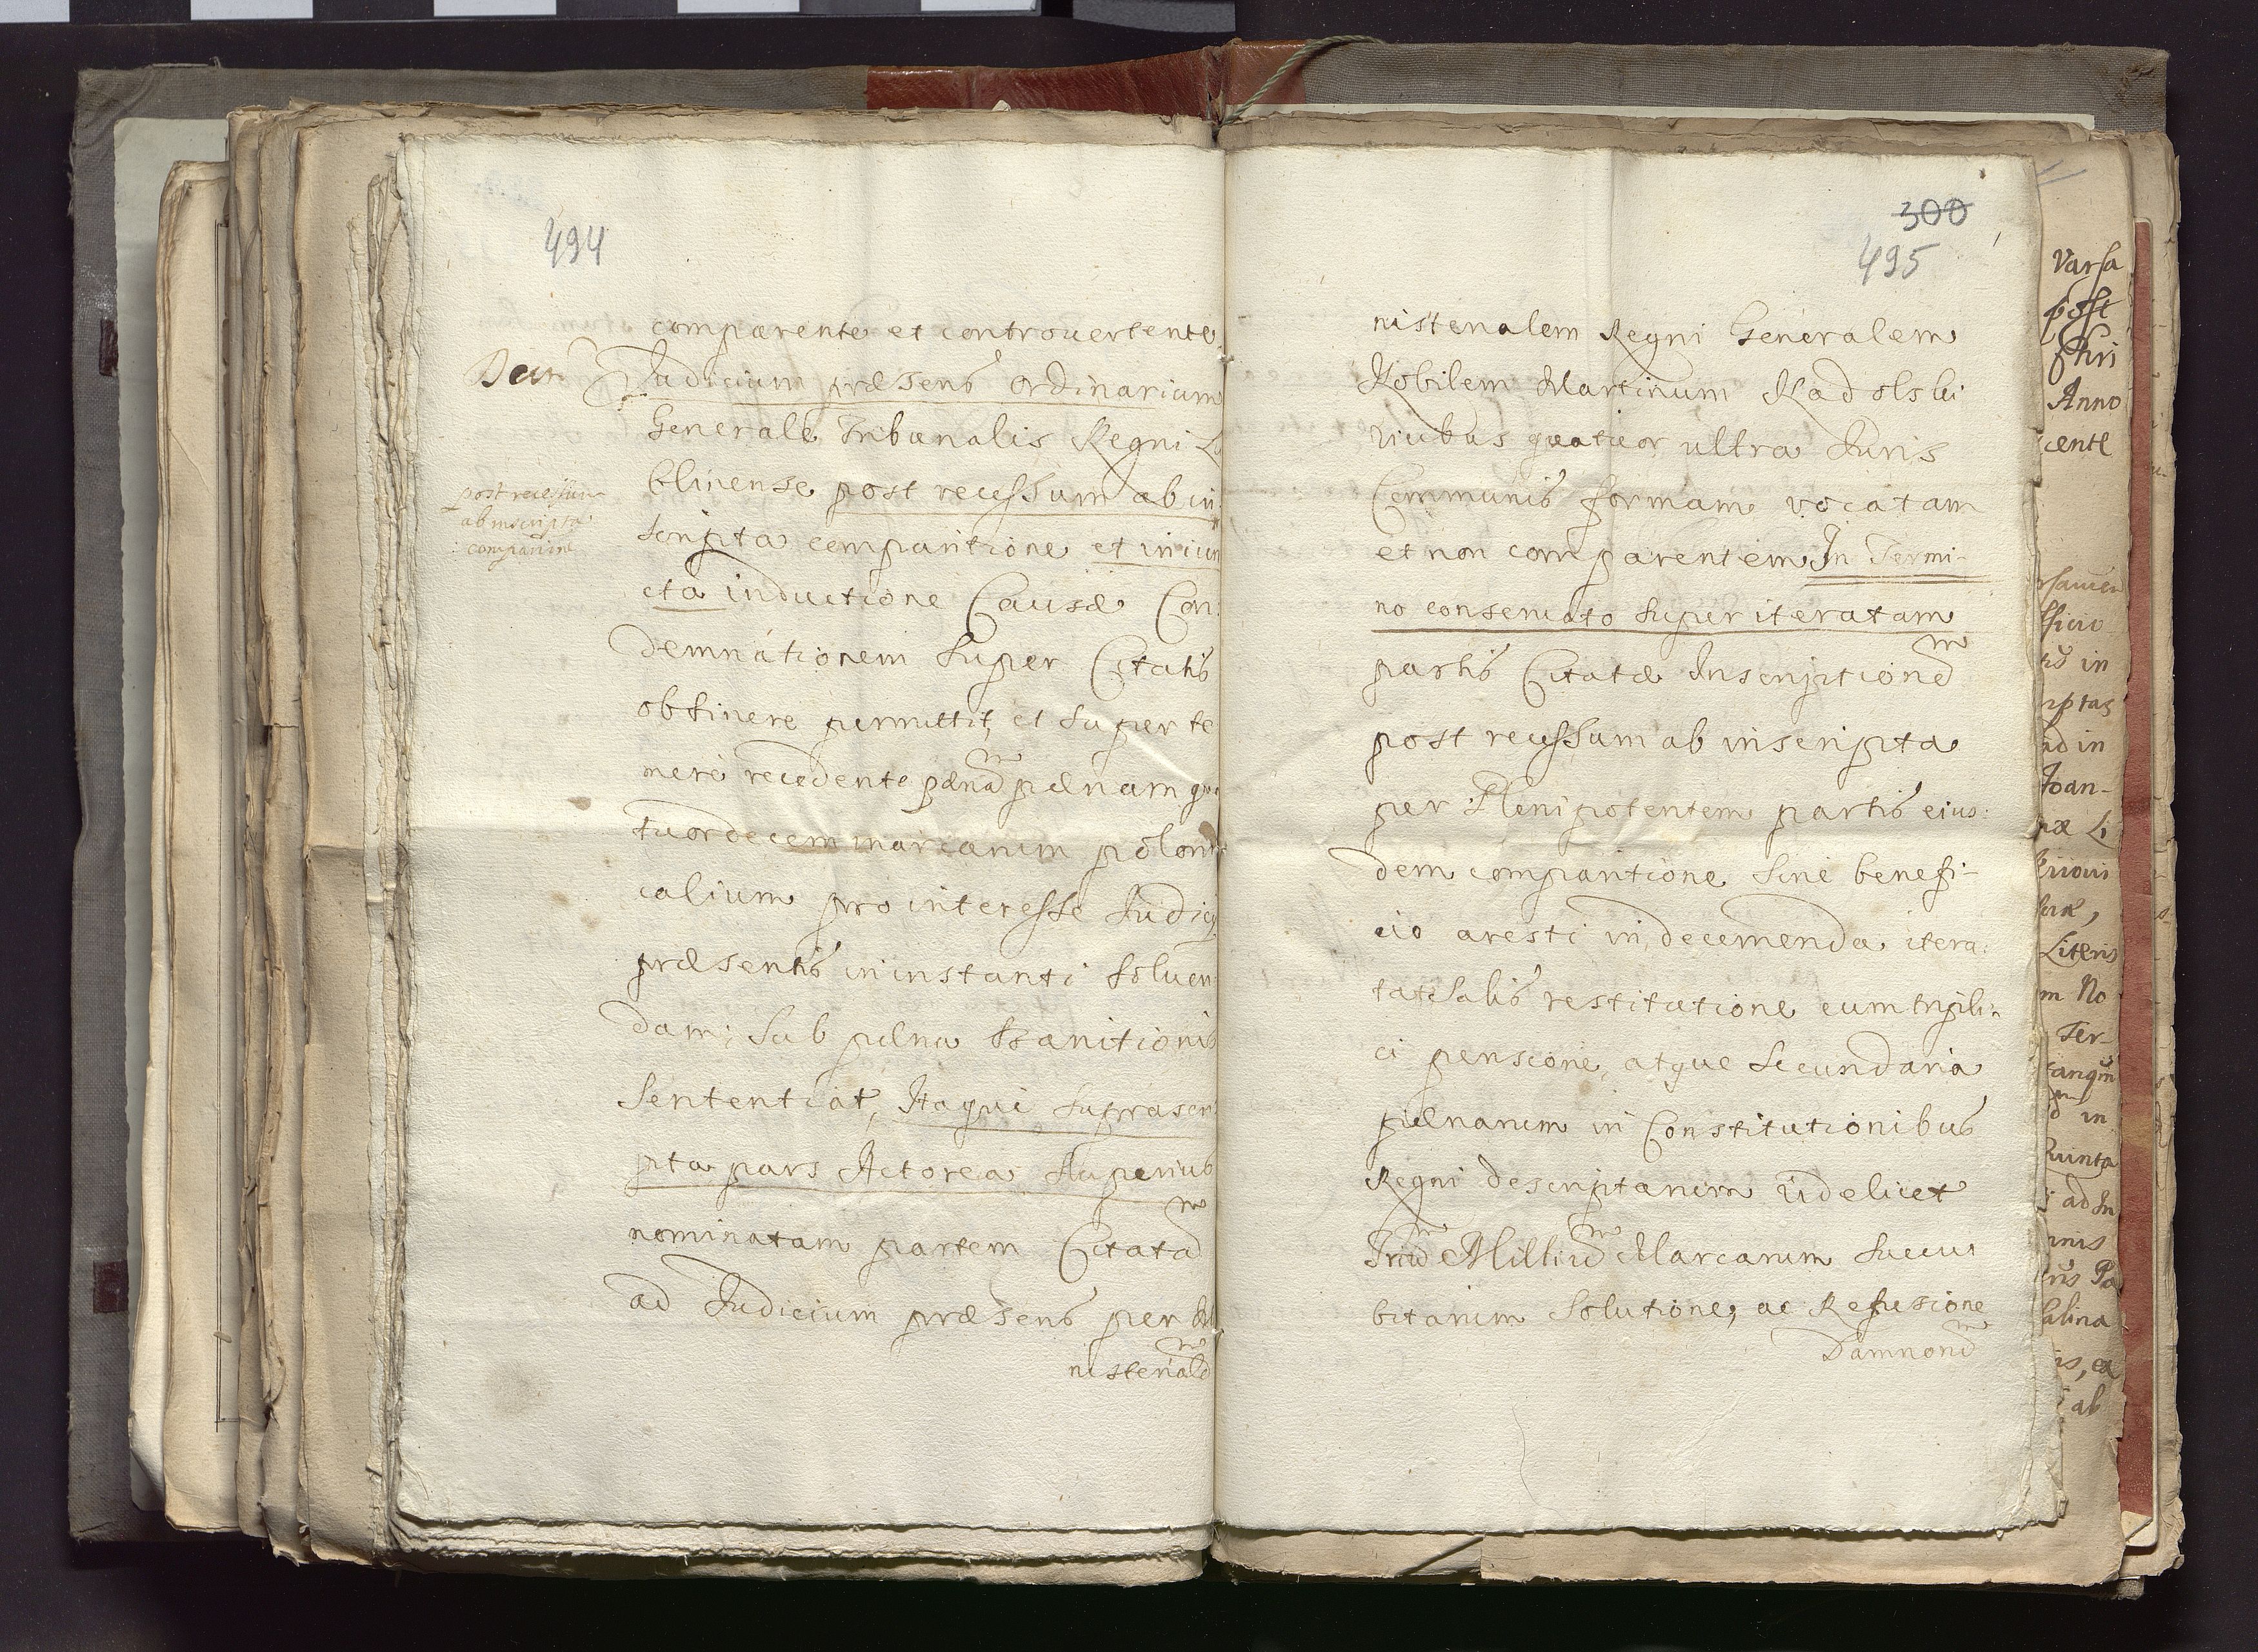 494
comparente et controuertente.
Judicium præsens ordinarium
Generale Tribunalis Regni Lu
blinense post recessum ab in
scripta comparitione et iniun
cta inductione Causæ Con:
demnationem super Citatis
obtinere permittit, et super te
mere recedente pænã pænam qua
tuordecem marcarum poloni
calium pro interesse Judicij
præsentis in instanti soluen
dam; sub pæna Banitionis
sententiat, Itaque suprascri
pta pars Actorea superius
nominatam partem Citatã
ad Judicium præsens per Mi
nisterialẽ
post recessum
ab inscripta
comparitine
300
495
nisterialem Regni Generalem
Nobilem Martinum Kadolski
vicibus quatuor ultra Juris
Communis formam vocatam
et non comparentem In Termi-
no conseruato super iteratam
partis Citatæ Inscriptionẽ
post recessum ab inscripta
per Plenipotentem partis eius:
dem comparitione sine benefi-
cio aresti in decernenda itera:
tæ salis restitutione cum tripli:
ci pensione, atque secundaria
pænarum in Constitutionibus
Regni descriptarum videlicet
Triũ Milliũ Marcarum succu:
bitarum solutione, ac Refusione
Damnorũ
Varsa
post
Chri
Anno
cente
fficio
in
ptas
ad in
Joan-
næ Li
Literis
m No
Ter-
in
ad In
ris Pa
salina
ab